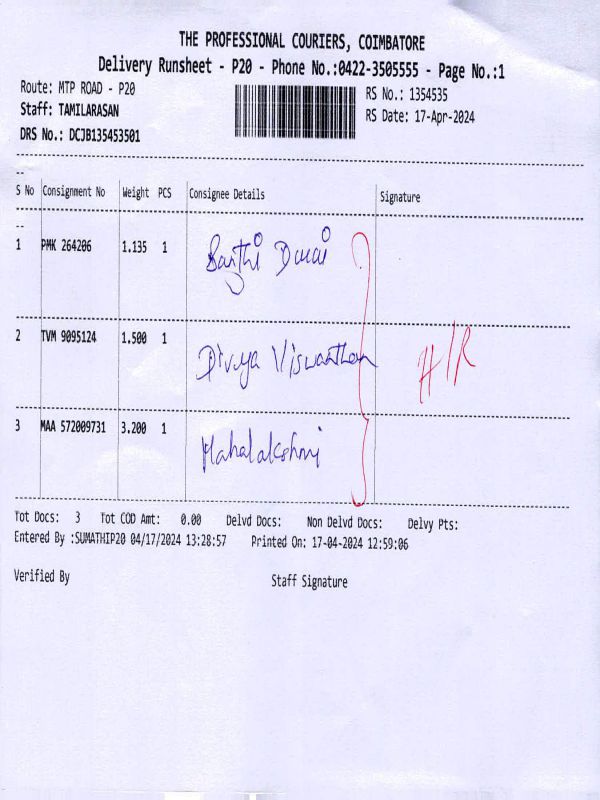 THE PROFESSIONAL COURIERS, COIMBATORE
Delivery Runsheet - P20 - Phone No.:0422-3505555 - Page No.:1
Route: MTP ROAD - P20
RS No.: 1354535
Staff: TAMILARASAN
RS Date: 17-Apr-2024
DRS No.: DCJB135453501
--
S No Consignment No Weight PCS Consignee Details Signature
--
1 PMK 264206 1.135 1
2 TVM 9095124 1.500 1 Divya Viswanthan
H/R
3 MAA 572009731 3.200 1 Mahalakshmi
Tot Docs: 3 Tot COD Amt: 0.00 Delvd Docs: Non Delvd Docs: Delvy Pts:
Entered By :SUMATHIP20 04/17/2024 13:28:57 Printed On: 17-04-2024 12:59:06
Verified By Staff Signature